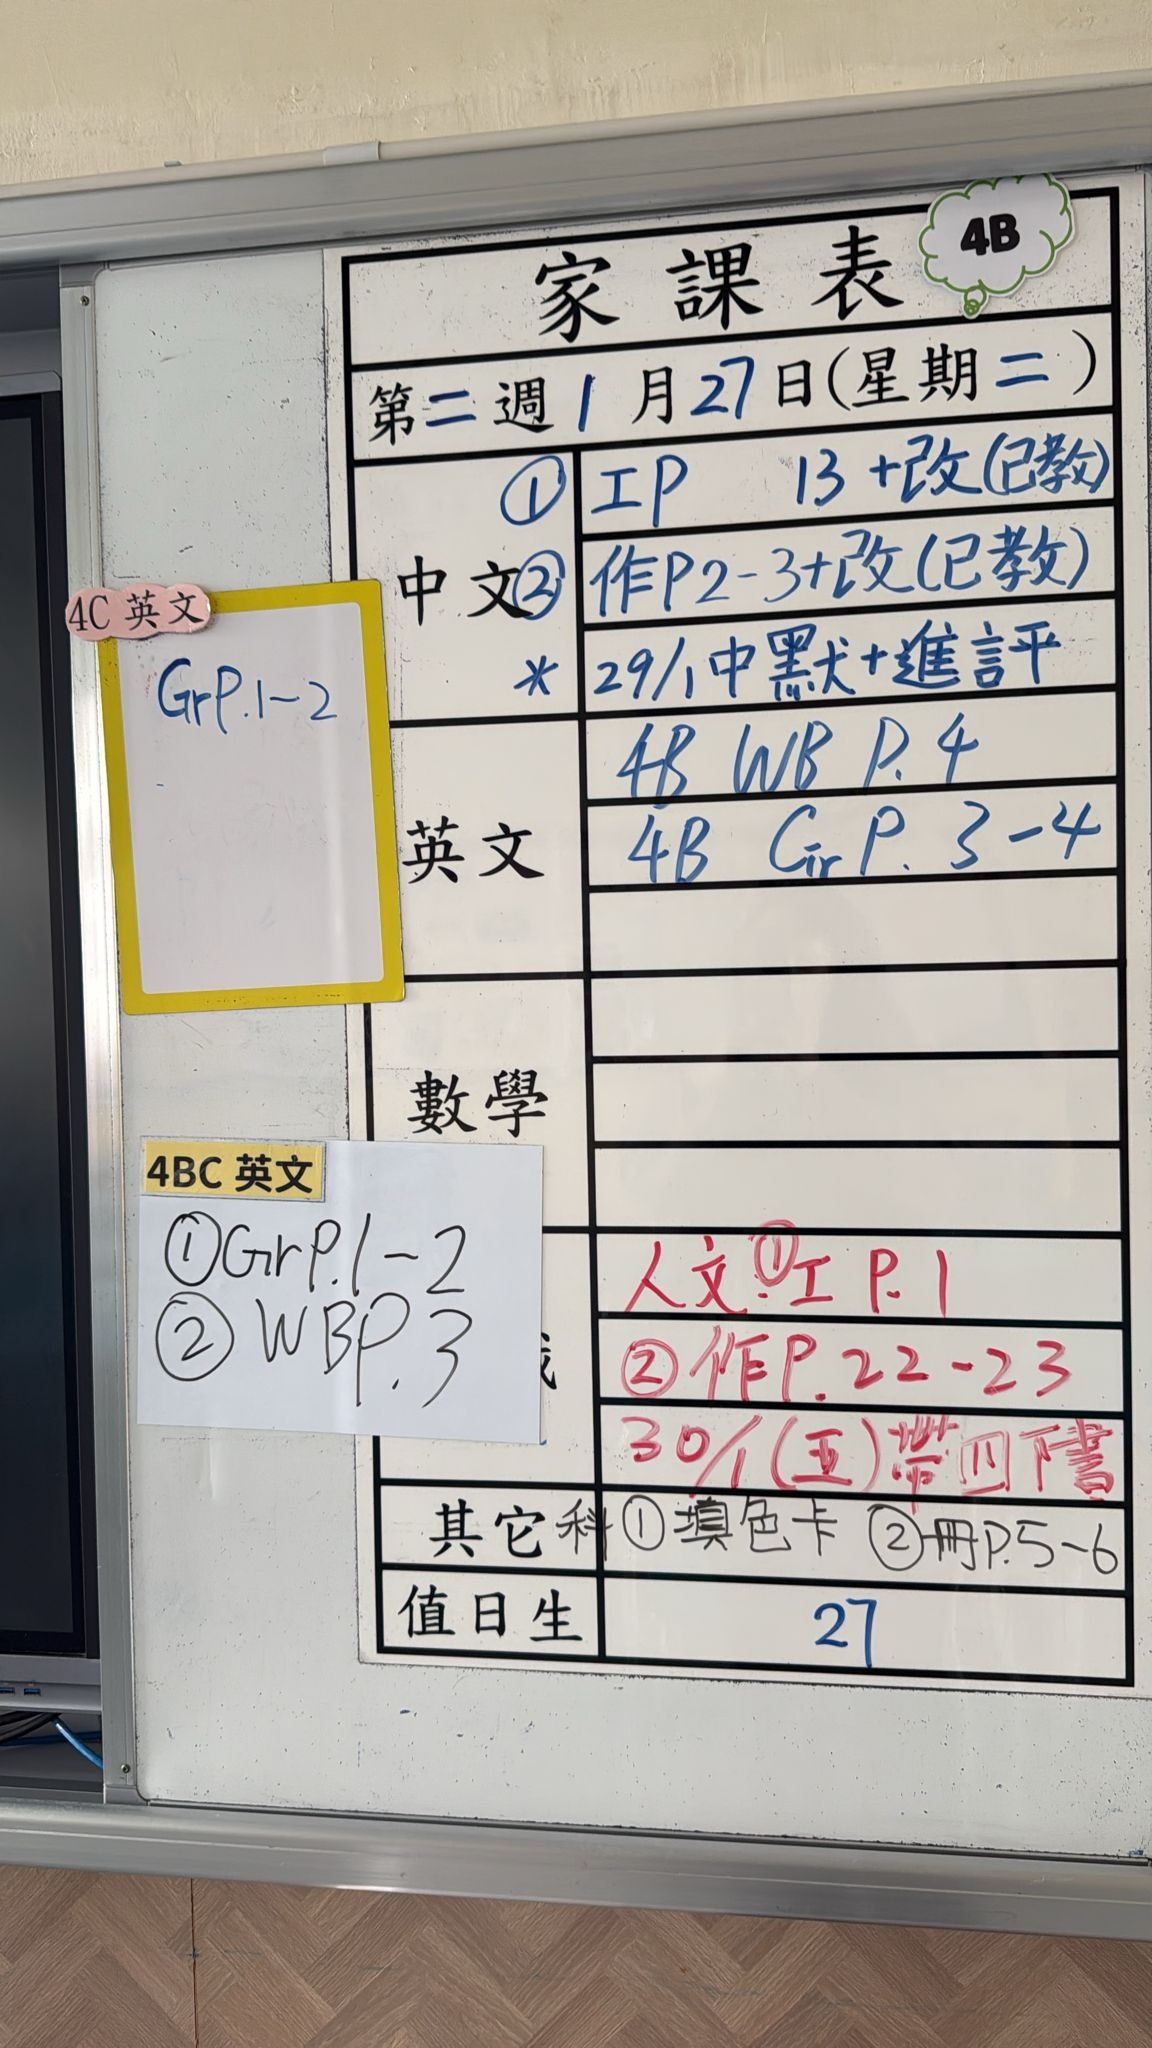 4B
家課表
第二週1月27日(星期二)
中文
① 工P 13+改(已教)
② 作P2-3+改(已教)
* 29/1中默+進評
英文
4B WB P.4
4B Gr P. 3-4
數學
人文:①工 P.1
②作P.22-23
30/1(五)帶四下書
其它科 ①填色卡 ②冊P.5-6
值日生 27
4C 英文
GrP.1-2
4BC 英文
①GrP.1-2
②WBP.3